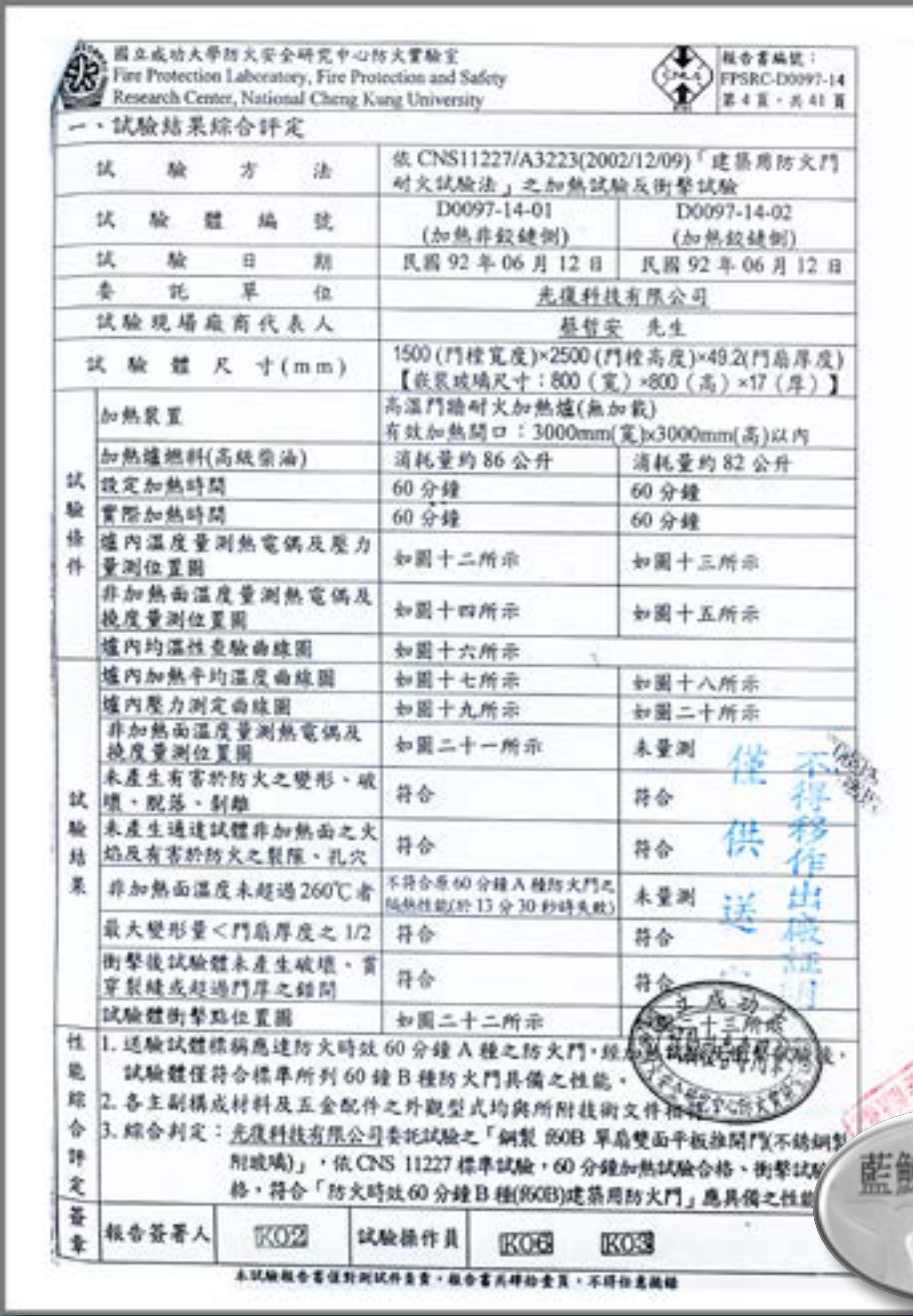 國立成功大學防火安全研究中心防火實驗室
Fire Protection Laboratory, Fire Protection and Safety
Research Center, National Cheng Kung University
報告書編號：
FPSRC-D0097-14
第 4 頁，共 41 頁
一、試驗結果綜合評定
試驗方法
依 CNS11227/A3223(2002/12/09)「建築用防火門
耐火試驗法」之加熱試驗及衝擊試驗
試驗體編號
D0097-14-01
(加熱非鉸鏈側)
D0097-14-02
(加熱鉸鏈側)
試驗日期
民國 92 年 06 月 12 日
民國 92 年 06 月 12 日
委託單位
光復科技有限公司
試驗現場廠商代表人
蔡哲安 先生
試驗體尺寸(mm)
1500 (門樘寬度)×2500 (門樘高度)×49.2(門扇厚度)
【嵌裝玻璃尺寸：800（寬）×800（高）×17（厚）】
試驗條件
加熱裝置
高溫門牆耐火加熱爐(無加載)
有效加熱開口：3000mm(寬)x3000mm(高)以內
加熱爐燃料(高級柴油)
消耗量約 86 公升
消耗量約 82 公升
設定加熱時間
60 分鐘
60 分鐘
實際加熱時間
60 分鐘
60 分鐘
爐內溫度量測熱電偶及壓力
量測位置圖
如圖十二所示
如圖十三所示
非加熱面溫度量測熱電偶及
撓度量測位置圖
如圖十四所示
如圖十五所示
爐內均溫性查驗曲線圖
如圖十六所示
試驗結果
爐內加熱平均溫度曲線圖
如圖十七所示
如圖十八所示
爐內壓力測定曲線圖
如圖十九所示
如圖二十所示
非加熱面溫度量測熱電偶及
撓度量測位置圖
如圖二十一所示
未量測
未產生有害於防火之變形、破
壞、脫落、剝離
符合
符合
未產生通達試體非加熱面之火
焰及有害於防火之裂隙、孔穴
符合
符合
非加熱面溫度未超過260℃者
不符合原60分鐘A種防火門之
隔熱性能(於 13 分 30 秒時失敗)
未量測
最大變形量＜門扇厚度之 1/2
符合
符合
衝擊後試驗體未產生破壞、貫
穿裂縫或超過門厚之錯開
符合
符合
試驗體衝擊點位置圖
如圖二十二所示
十三所
僅供送
不得移作出廠証明
性能綜合評定
1. 送驗試體標稱應達防火時效 60 分鐘 A 種之防火門，經加熱試驗及衝擊試驗後，
試驗體僅符合標準所列 60 鐘 B 種防火門具備之性能。
2. 各主副構成材料及五金配件之外觀型式均與所附技術文件相
3. 綜合判定：光復科技有限公司委託試驗之「鋼製 f60B 單扇雙面平板推開門(不銹鋼製
附玻璃)」，依 CNS 11227 標準試驗，60 分鐘加熱試驗合格、衝擊試驗
格，符合「防火時效 60 分鐘 B 種(f60B)建築用防火門」應具備之性能
簽章
報告簽署人
K02
試驗操作員
K06
K03
本試驗報告書僅對測試件負責，報告書共肆拾壹頁，不得任意摘錄
藍